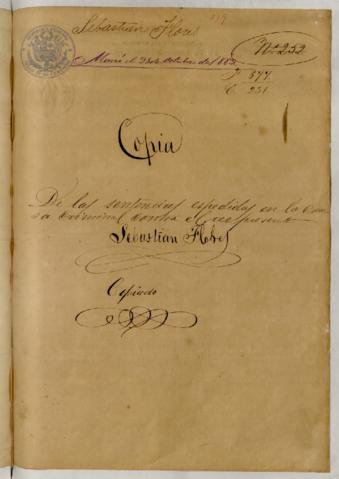 Sebastian Flores
Murió el 23 de Octubre del 883.
Nº 252
F. 877.
C. 231
Copia
De las sentencias espedidas en la Cau-
sa criminal contra el reo presente
Sebastian Flores
Copiado